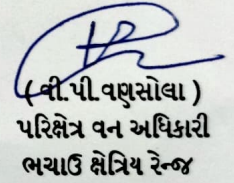 ( વી.પી.વણસોલા )
પરિક્ષેત્ર વન અધિકારી
ભચાઉ ક્ષેત્રિય રેન્જ